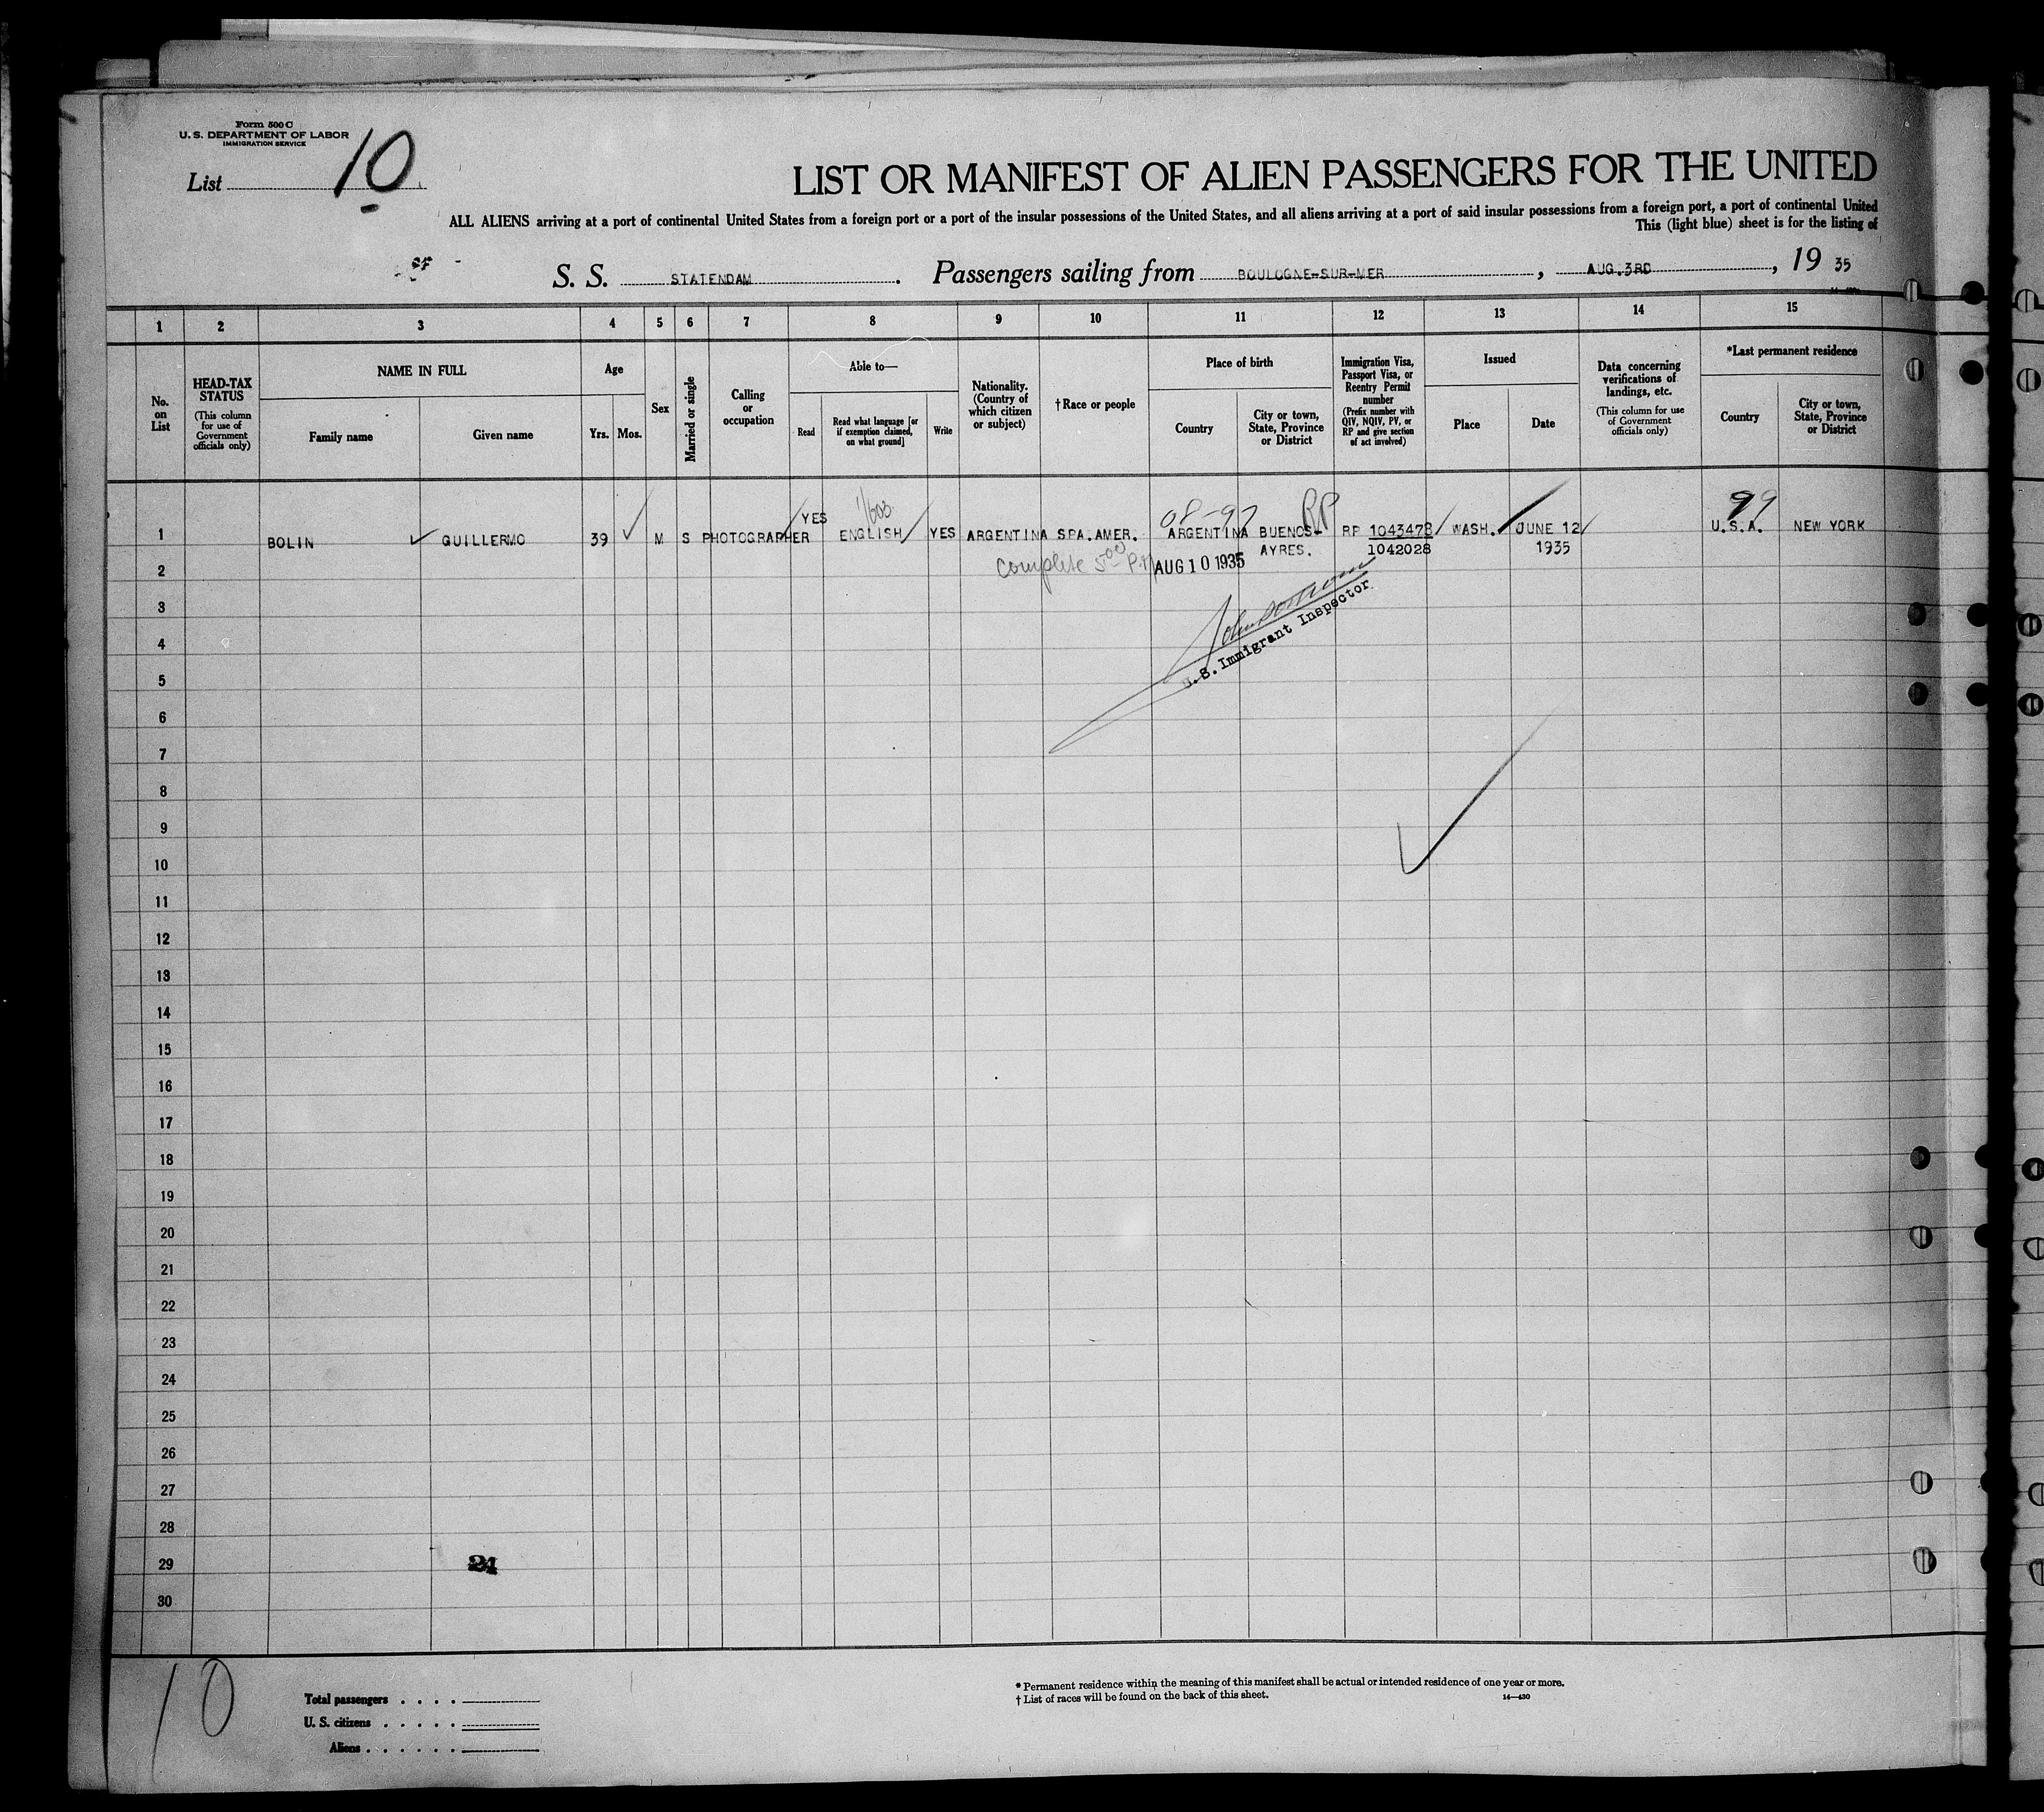 Form 500 C
U. S. DEPARTMENT OF LABOR
IMMIGRATION SERVICE
List 10
LIST OR MANIFEST OF ALIEN PASSENGERS FOR THE UNITED
ALL ALIENS arriving at a port of continental United States from a foreign port or a port of the insular possessions of the United States, and all aliens arriving at a port of said insular possessions from a foreign port, a port of continental United
This (light blue) sheet is for the listing of
S. S. STATENDAM. Passengers sailing from BOULOGNE-SUR-MER, AUG.3RD, 19 35
1 2 3 4 5 6 7 8 9 10 11 12 13 14 15
No. on List
HEAD-TAX STATUS
(This column for use of Government officials only)
NAME IN FULL
Family name
Given name
Age
Yrs.
Mos.
Sex
Married or single
Calling or occupation
Able to—
Read
Read what language [or if exemption claimed, on what ground]
Write
Nationality. (Country of which citizen or subject)
†Race or people
Place of birth
Country
City or town, State, Province or District
Immigration Visa, Passport Visa, or Reentry Permit number
(Prefix number with QIV, NQIV, PV, or RP and give section of act involved)
Issued
Place
Date
Data concerning verifications of landings, etc.
(This column for use of Government officials only)
*Last permanent residence
Country
City or town, State, Province or District
08-97 RP 99
1 BOLIN GUILLERMO 39 M S PHOTOGRAPHER YES ENGLISH YES ARGENTINA SPA.AMER. ARGENTINA BUENOS- RP 1043478 WASH. JUNE 12 U.S.A. NEW YORK
AYRES. 1042028 1935
2 Complete 5 00 P.M. AUG 10 1935
3
4 U.S. Immigrant Inspector
5
6
7
8
9
10
11
12
13
14
15
16
17
18
19
20
21
22
23
24
25
26
27
28
29
30
10
Total passengers . . . .
U. S. citizens . . . . .
Aliens . . . . . .
* Permanent residence within the meaning of this manifest shall be actual or intended residence of one year or more.
† List of races will be found on the back of this sheet. 14—430